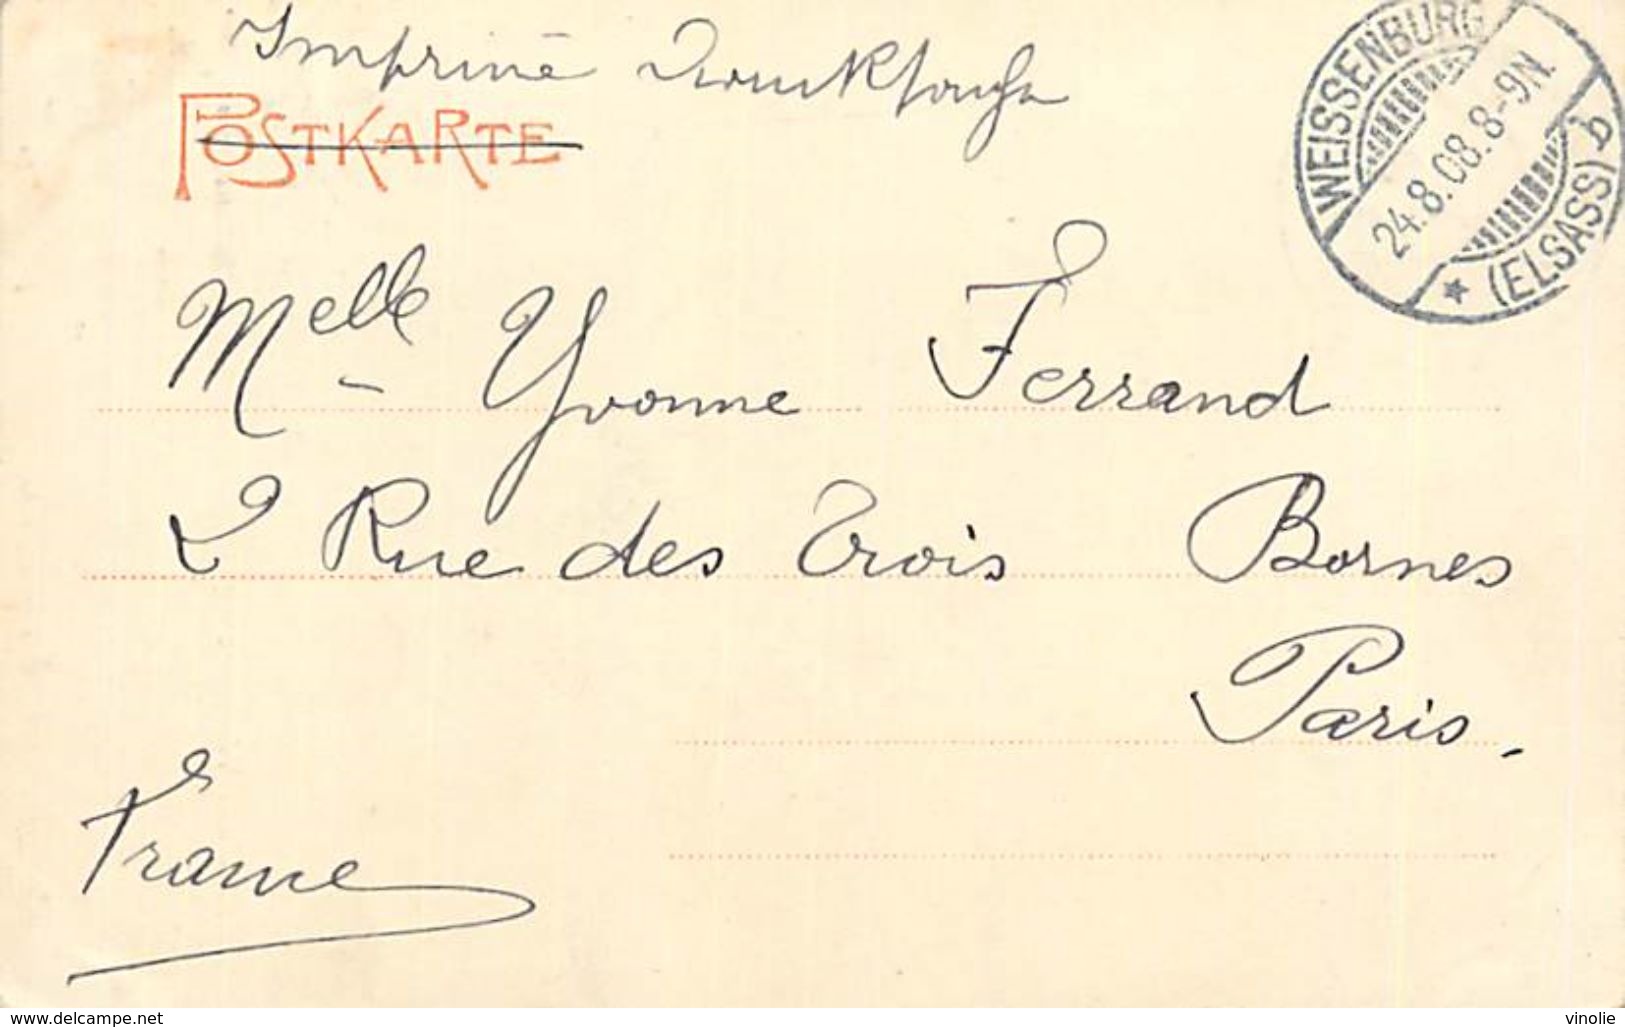 Imprimé Drucksache
POSTKARTE
WEISSENBURG
24.8.08.8-9N.
* (ELSASS) b
Melle Yvonne Ferrand
2 Rue des Trois Bornes
Paris.
France
www.delcampe.net
vinolie